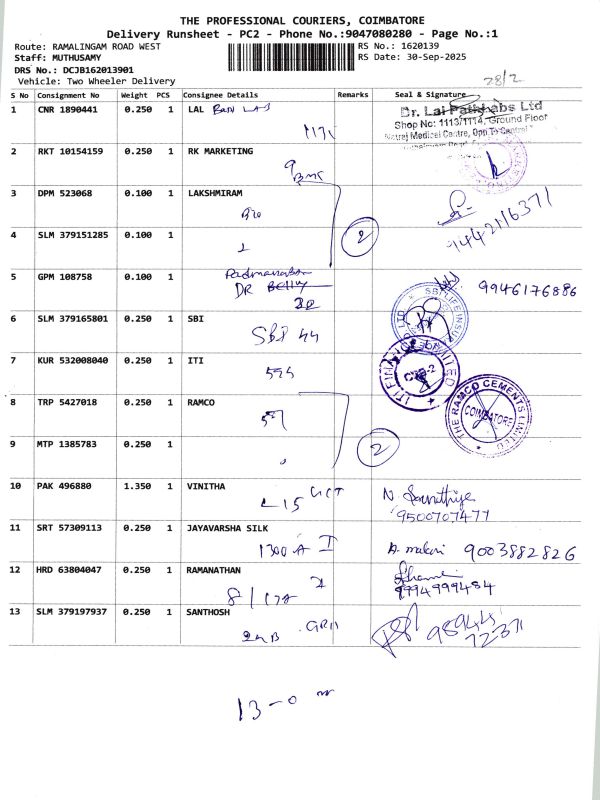 THE PROFESSIONAL COURIERS, COIMBATORE
Delivery Runsheet - PC2 - Phone No.:9047080280 - Page No.:1
Route: RAMALINGAM ROAD WEST RS No.: 1620139
Staff: MUTHUSAMY RS Date: 30-Sep-2025
DRS No.: DCJB162013901
Vehicle: Two Wheeler Delivery
28/2
S No Consignment No Weight PCS Consignee Details Remarks Seal & Signature
1 CNR 1890441 0.250 1 LAL
Dr. Lal PathLabs Ltd
Shop No: 1113/1114, Ground Floor
2 RKT 10154159 0.250 1 RK MARKETING
3 DPM 523068 0.100 1 LAKSHMIRAM
9442116371
2
4 SLM 379151285 0.100 1
5 GPM 108758 0.100 1 Padmanaban
DR
9946176886
6 SLM 379165801 0.250 1 SBI
SBI 44
SBI LIFE INSUR
7 KUR 532008040 0.250 1 ITI
ITI FINANCE LIMITED
CBE-2
8 TRP 5427018 0.250 1 RAMCO
THE RAMCO CEMENTS LIMITED
COIMBATORE
9 MTP 1385783 0.250 1
2
10 PAK 496880 1.350 1 VINITHA
L 15
9500707477
11 SRT 57309113 0.250 1 JAYAVARSHA SILK
1300 A I
9003882826
12 HRD 63804047 0.250 1 RAMANATHAN
9994999484
13 SLM 379197937 0.250 1 SANTHOSH
98944
72371
13-0